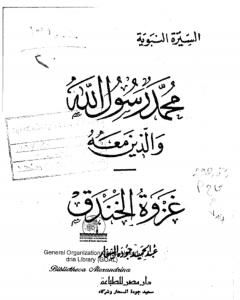 السيرة النبوية
محمد رسول الله
والذين معه
غزوة الخندق
عبد الحميد جوده السحار
General Organization
dria Library (GOAL)
Bibliotheca Alexandrina
دار مصر للطباعة
سعيد جودة السحار وشركاه